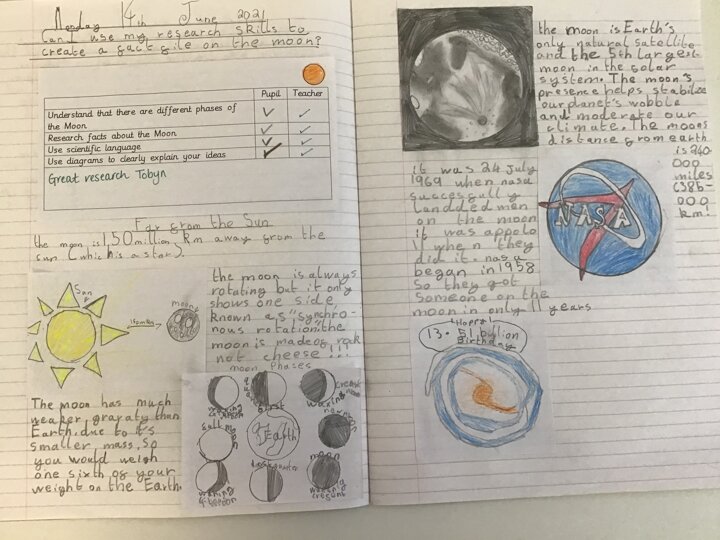 Monday 14th June 2021
Can I use my research skills to
create a fact file on the moon?
Pupil Teacher
Understand that there are different phases of
the Moon
Research facts about the Moon
Use scientific language
Use diagrams to clearly explain your ideas
Great research Tobyn
Far from the Sun
the moon is 150 million km away from the
sun (which is a star).
Sun
moon
the moon is always
rotating but it only
shows one side,
known as "synchro-
nous rotation". the
moon is made of rock
not cheese...
The moon has much
weaker gravaty than
Earth due to it's
smaller mass, so
you would weigh
one sixth of your
weight on the Earth.
moon Phases
first
new moon
full moon
Earth
the moon is Earth's
only natural satellite
and the 5th largest
moon in the solar
system. The moon's
presence helps stabilize
our planet's wobble
and moderate our
climate. The moons
distance from earth
is 240
000
miles
(386-
000
km!
it was 24 July
1969 when nasa
successfully
landded men
on the moon
it was appolo
11 when they
did it. nasa
began in 1958
So they got
someone on the
moon in only 11 years
NASA
Happy
13.51 billion
Birthday